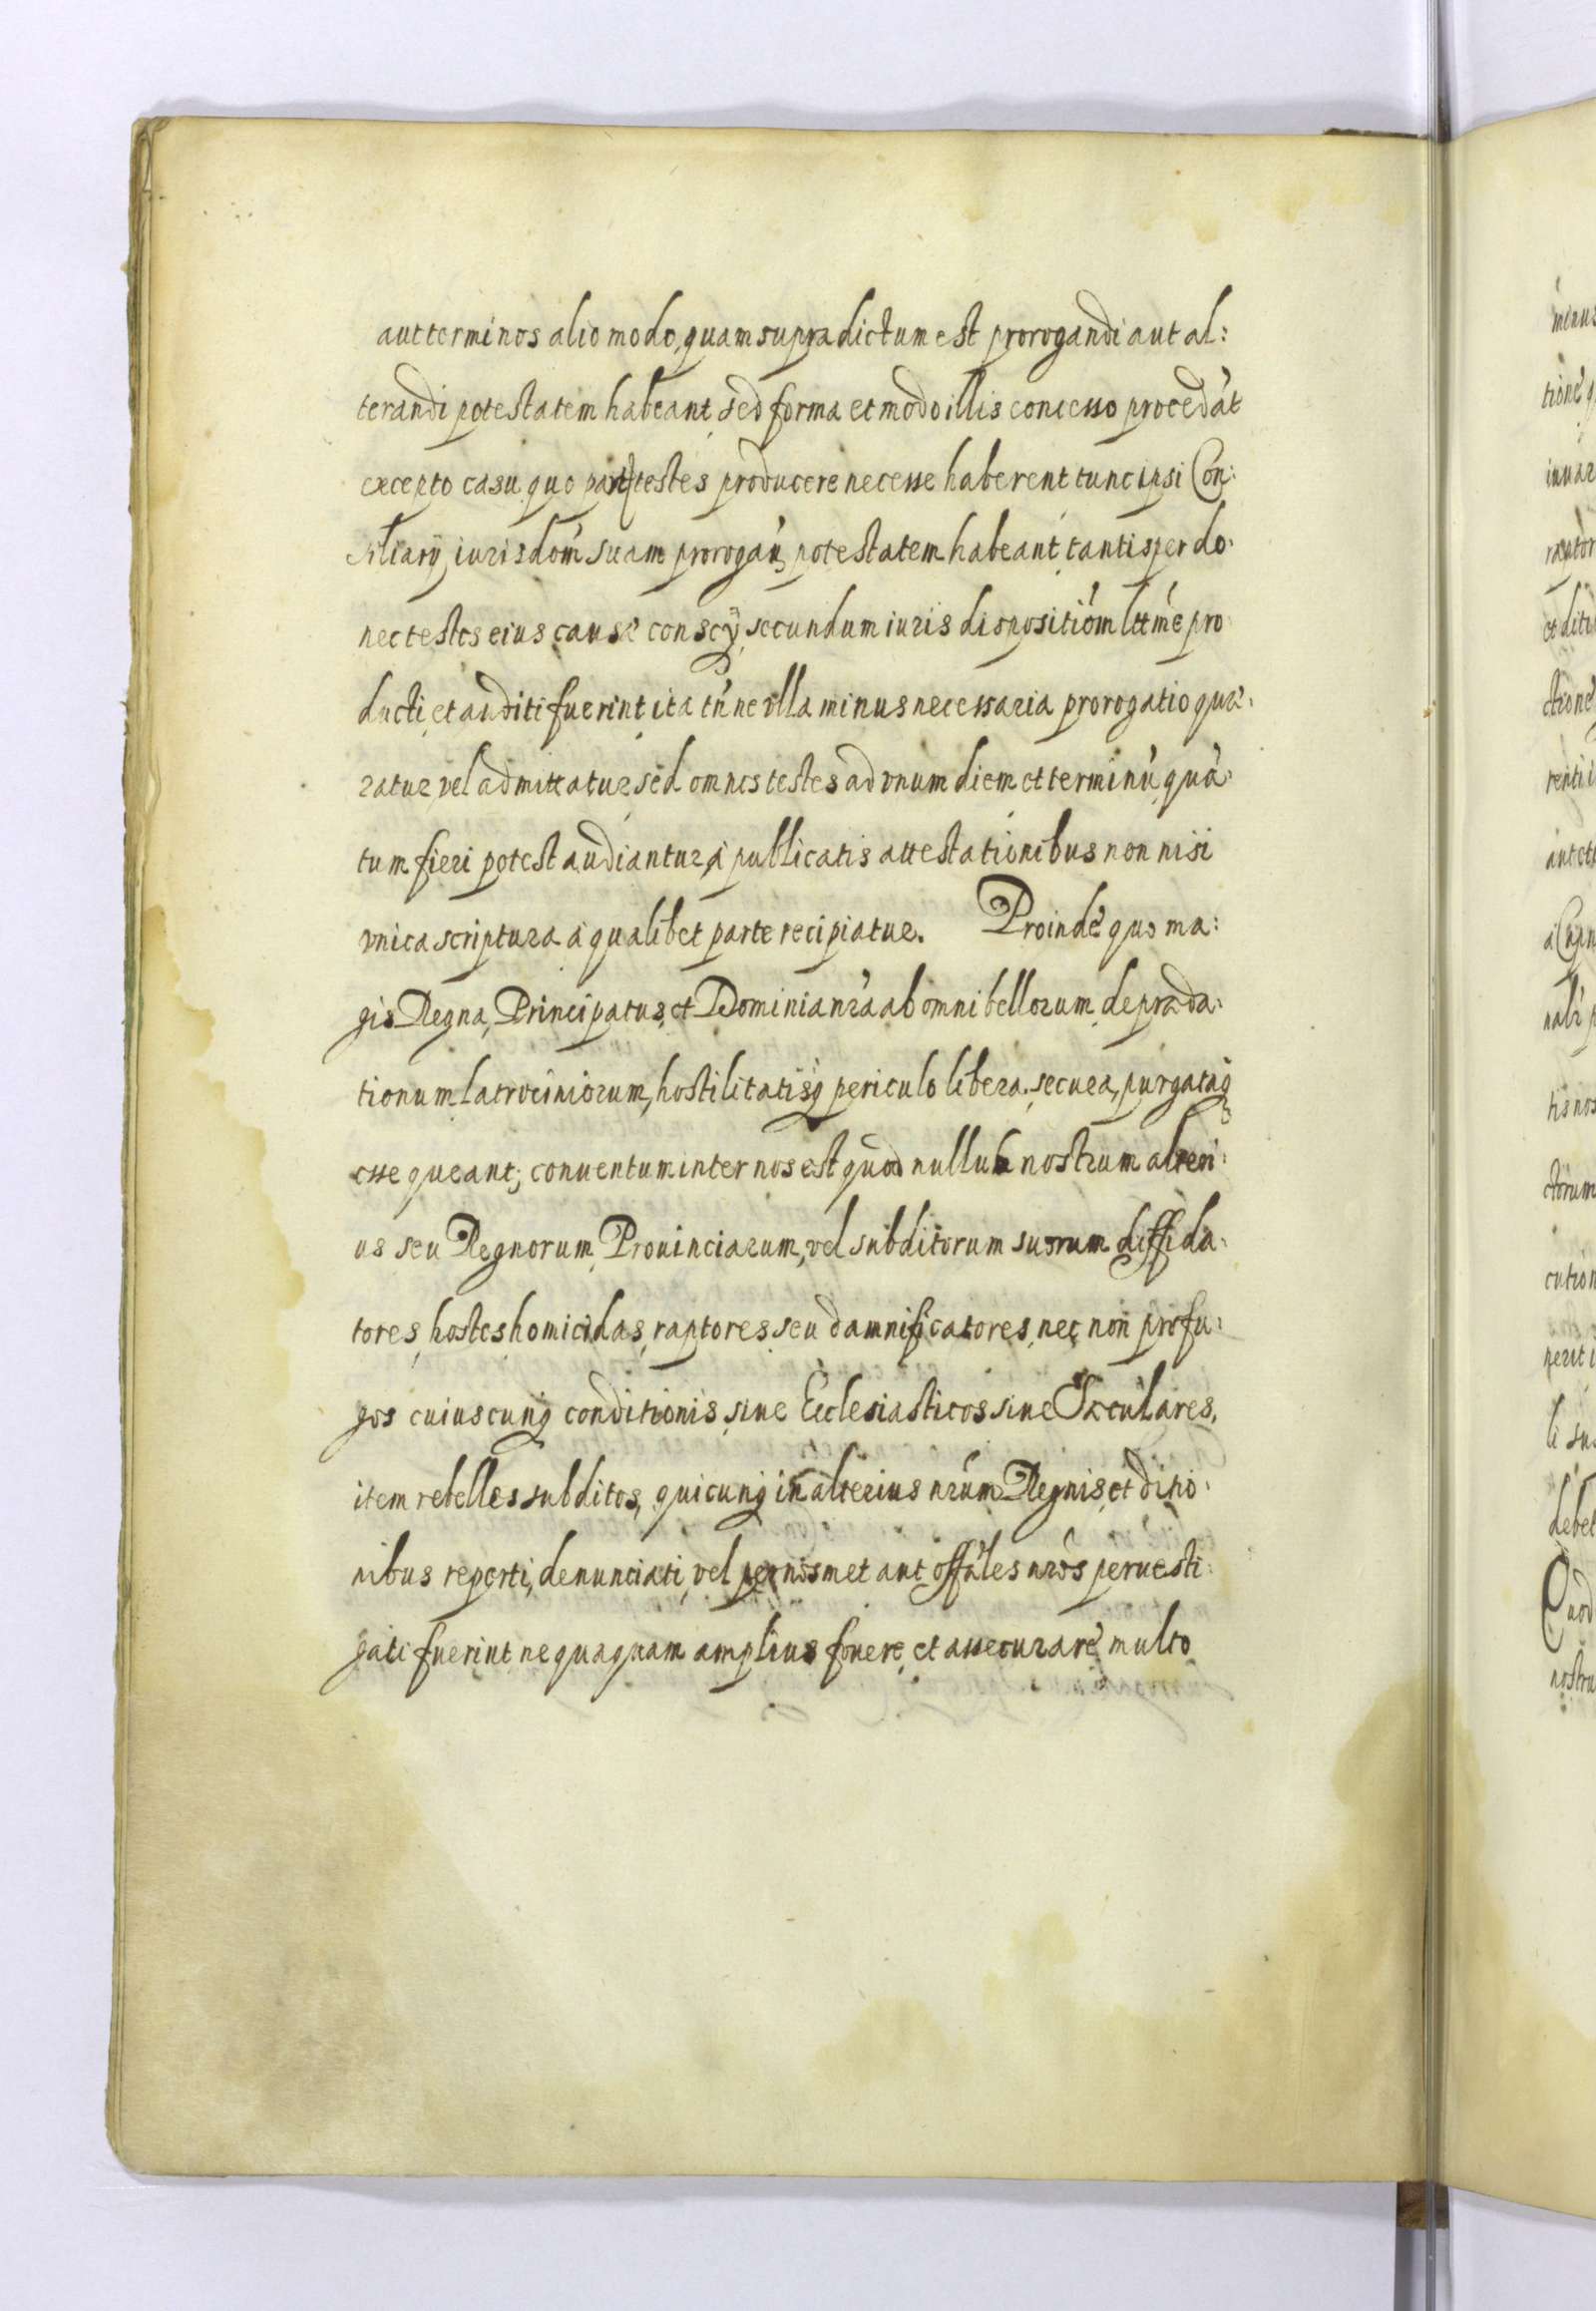 aut terminos alio modo, quam supra dictum est prorogandi aut al:
terandi potestatem habeant, sed forma et modo illis concesso procedāt
excepto casu quo testes producere necesse haberent tunc ipsi Con:
siliarij, iurisdōm suam potestatem habeant, tantisper do:
nec testes eius causæ conscij, secundum iuris dispositiōm lttme pro
ducti, et auditi fuerint, ita tn̄ ne vlla minus necessaria prorogatio quæ:
ratur vel admittatur, sed omnes testes ad vnum diem et terminū, quā:
tum fieri potest audiantur, publicatis attestationibus non nisi
vnica scriptura à qualibet parte recipiatur. Proindè quo ma:
gis Regna, Principatus, et Dominia nr̄a ab omni bellorum, depræda:
tionum, latrociniorum, hostilitatisq̄ periculo libera, secura, purgataq̄
esse queant; conuentum inter nos est quod nullus nostrum alteri:
us seu Regnorum, Prouinciarum, vel subditorum suorum diffida:
tores, hostes, homicidas, raptores, seu damnificatores, nec non profu:
gos cuiuscunq̄ conditionis, siue Ecclesiasticos siue Sæculares,
item rebelles subditos, quicunq̄ in alterius nr̄um Regnis, et ditio:
nibus reperti, denunciati, vel per nosmet aut offāles nr̄os peruesti:
gati fuerint, nequaquam amplius fouere, et assecurare, multo